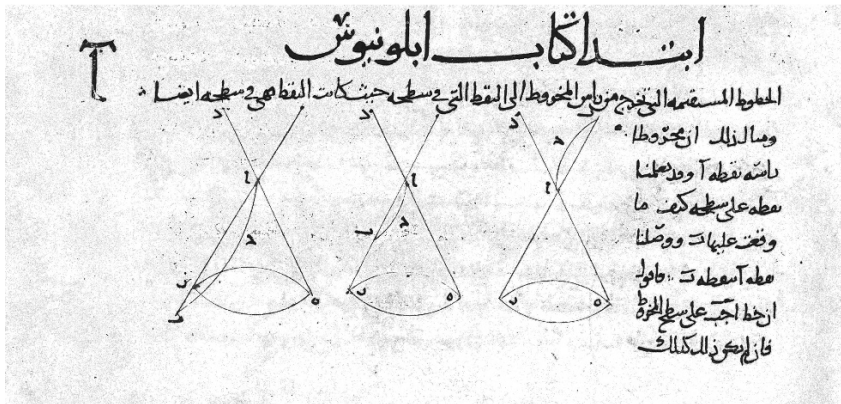 ابتدا كتاب ابلونيوس
آ
الخطوط المستقيمه التى تخرج من راس المخروط الى النقط التى فى سطحه حيث كانت النقط فهى فى سطحه ايضا
د د د
ا ا ا
ح ح ح
ب ب
ر ر ر
ه ه ه
مثال ذلك ان مخروطا
راسه نقطه آ وقد تعلمنا
نقطه على سطحه كيف ما
وقعت عليها ب ووصلنا
نقطه آ بنقطه ب فاقول
ان خط اجب على سطح المخروط
فان لم يكن ذلك كذلك